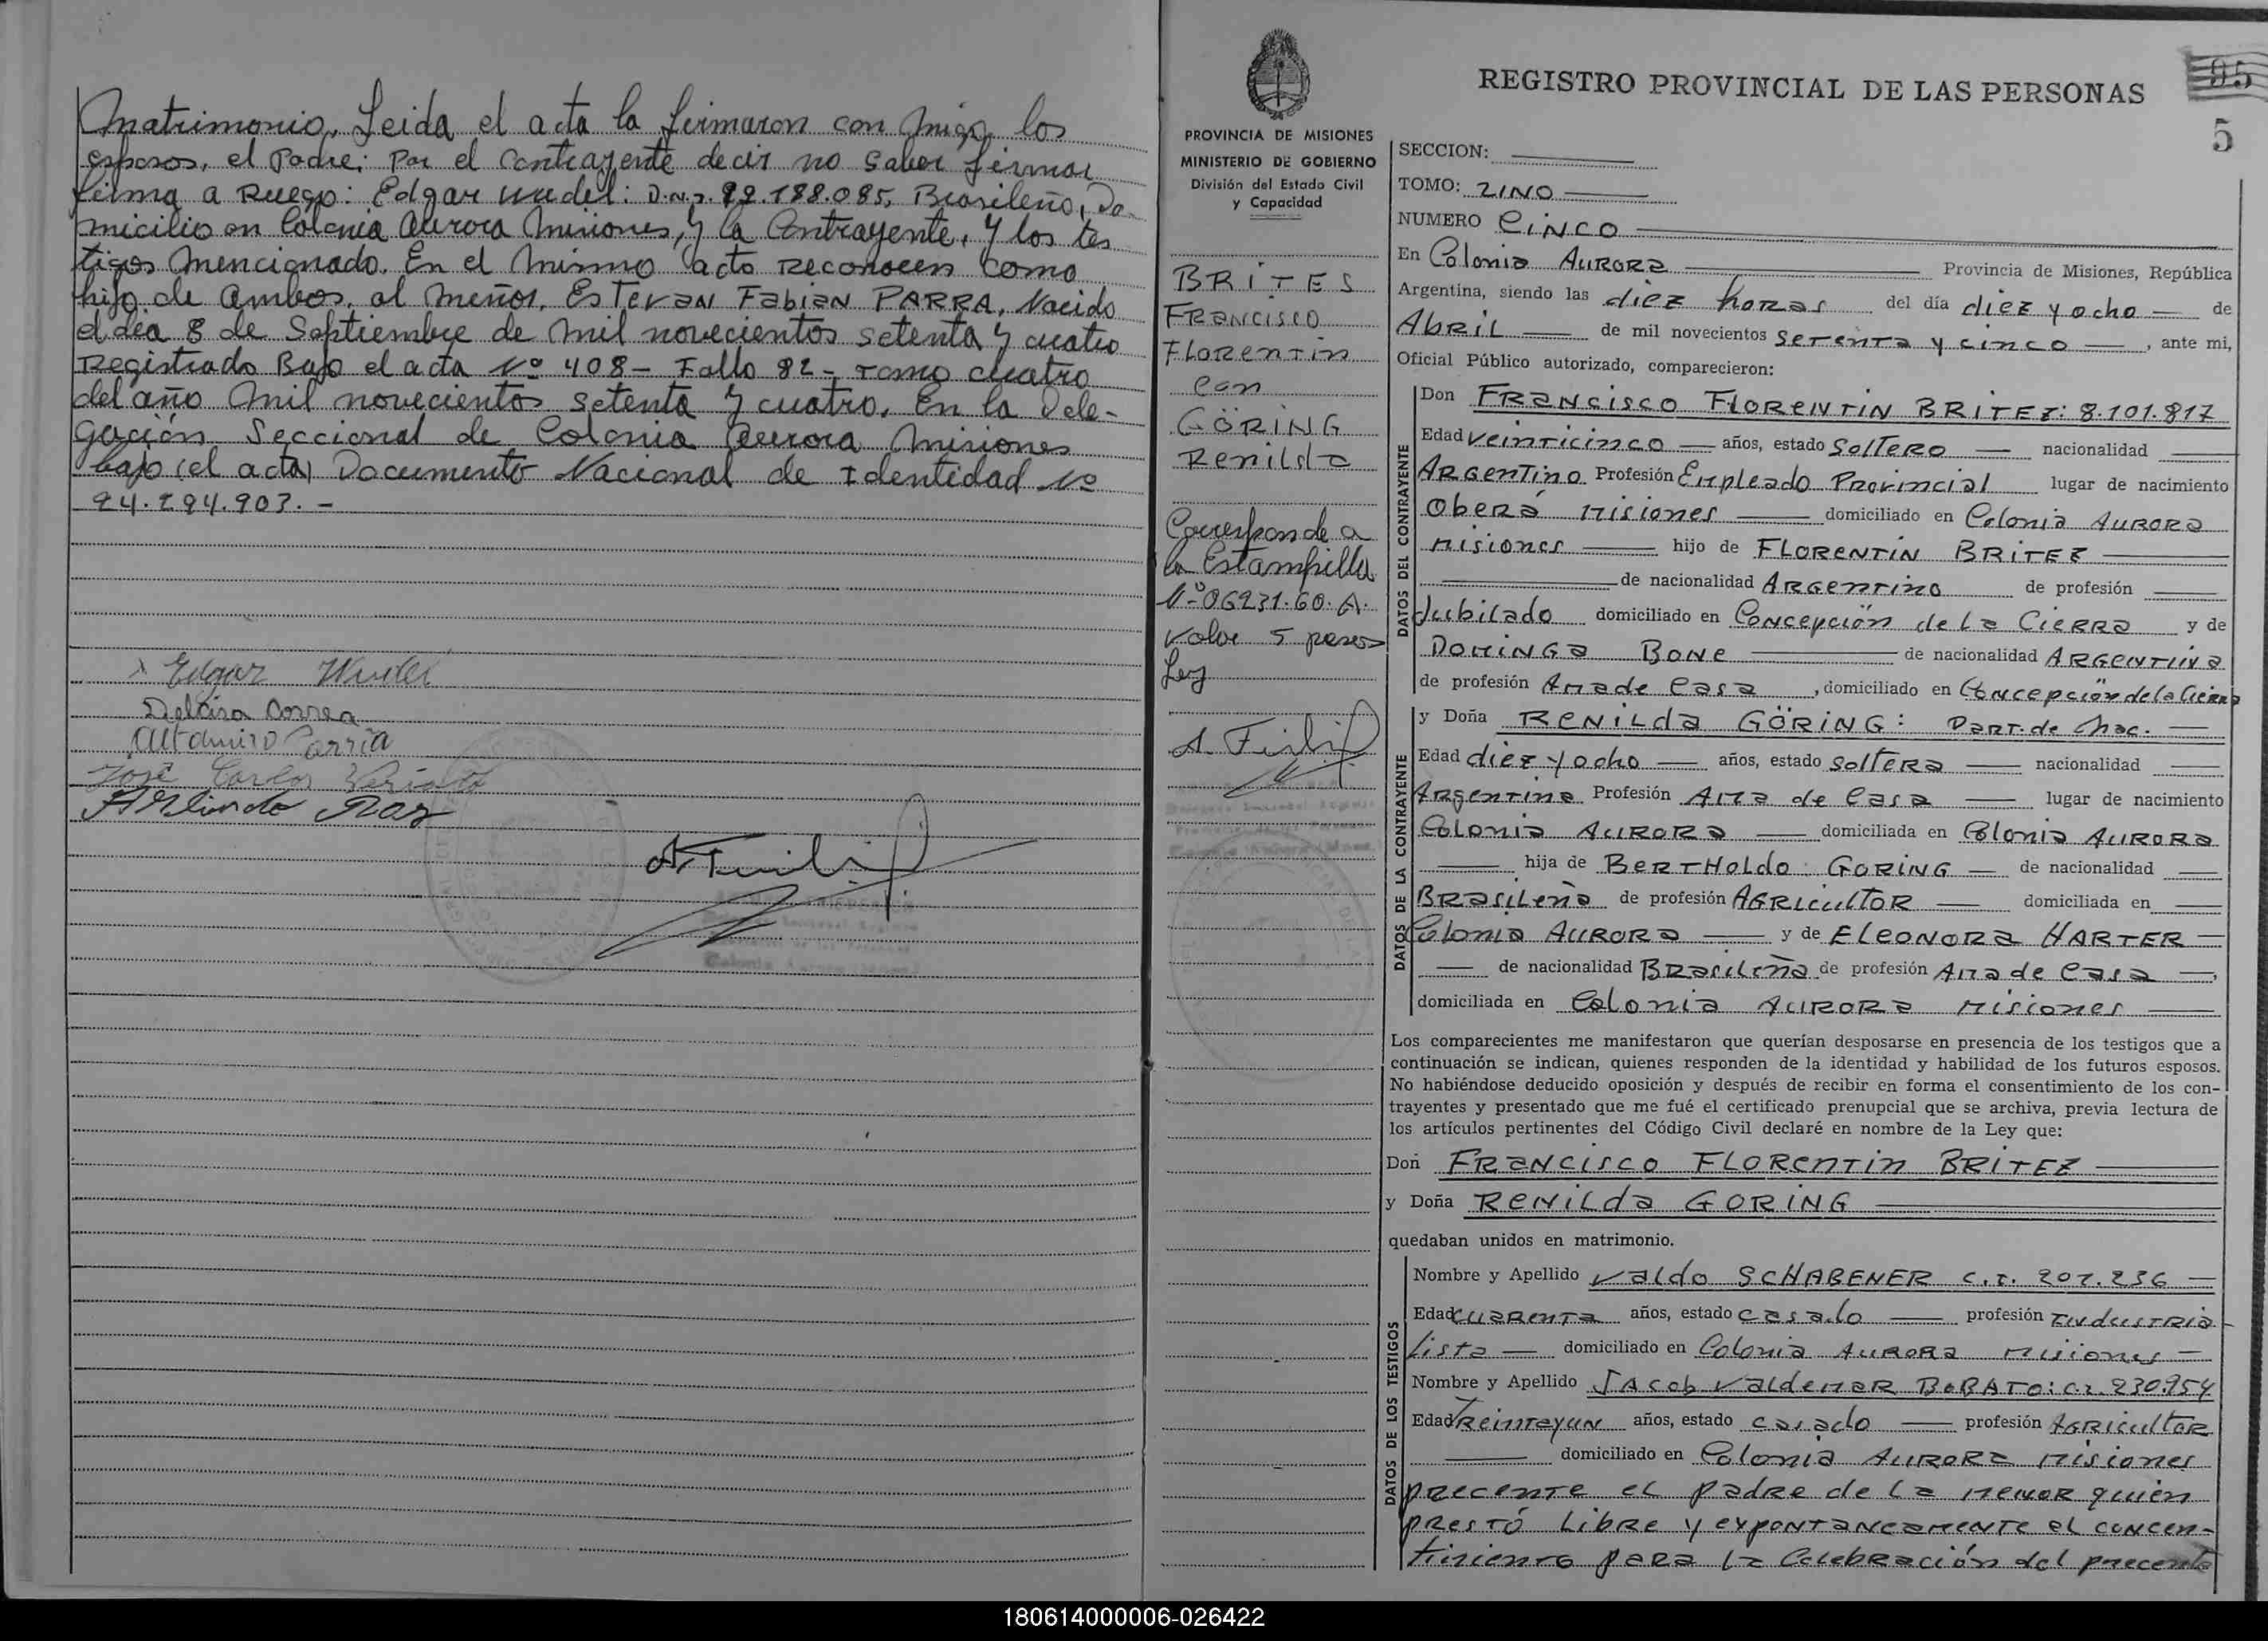 Matrimonio. Leida el acta la firmaron con migo los
esposos, el Padre; Por el Contrayente decir no saber firmar
firma a Ruego: Edgar Wudel: D.N.I. 92.188.085, Brasileño, Do-
micilio en Colonia Aurora Misiones, y la Contrayente, y los tes
tigos Mencionado. En el Mismo acto Reconocen como
hijo de Ambos, al Menor, Estevan Fabian PARRA, Nacido
el dia 8 de Septiembre de Mil novecientos setenta y cuatro
Registrado Bajo el acta Nº 408- Follo 82- Tomo cuatro
del año Mil novecientos setenta y cuatro, En la Dele-
gación Seccional de Colonia Aurora Misiones
bajo (el acta) Documento Nacional de Identidad Nº
24.294.903.-
x Edgar Wudel
Delcira Correa
Altamiro Parria
José Carlos
Arlindo
95
5
REGISTRO PROVINCIAL DE LAS PERSONAS
PROVINCIA DE MISIONES
MINISTERIO DE GOBIERNO
División del Estado Civil
y Capacidad
BRITES
FRANCISCO
FLORENTIN
con
GÖRING
Renilda
Corresponde a
la Estampilla
Nº 06231.60.A.
Valor 5 pesos
Ley
SECCION:
TOMO: UNO
NUMERO CINCO
En Colonia AURORA Provincia de Misiones, República
Argentina, siendo las diez horas del día diez y ocho de
Abril de mil novecientos setenta y cinco, ante mi,
Oficial Público autorizado, comparecieron:
DATOS DEL CONTRAYENTE
Don FRANCISCO FLORENTIN BRITEZ: 8.101.817
Edad veinticinco años, estado SOLTERO nacionalidad
ARGENTINO Profesión Empleado Provincial lugar de nacimiento
Oberá Misiones domiciliado en Colonia AURORA
Misiones hijo de FLORENTIN BRITEZ
de nacionalidad ARGENTINO de profesión
Jubilado domiciliado en Concepción de la Cierra y de
DOMINGA BONE de nacionalidad ARGENTINA
de profesión Ama de Casa, domiciliado en Concepción de la Cierra
DATOS DE LA CONTRAYENTE
y Doña RENILDA GÖRING: PART. de Nac.
Edad diez y ocho años, estado soltera nacionalidad
Argentina Profesión Ama de Casa lugar de nacimiento
Colonia AURORA domiciliada en Colonia AURORA
hija de BERTHOLDO GORING de nacionalidad
BRASILEÑA de profesión AGRICULTOR domiciliada en
Colonia AURORA y de ELEONORA HARTER
de nacionalidad BRASILEÑA de profesión Ama de Casa,
domiciliada en Colonia AURORA Misiones
Los comparecientes me manifestaron que querían desposarse en presencia de los testigos que a
continuación se indican, quienes responden de la identidad y habilidad de los futuros esposos.
No habiéndose deducido oposición y después de recibir en forma el consentimiento de los con-
trayentes y presentado que me fué el certificado prenupcial que se archiva, previa lectura de
los artículos pertinentes del Código Civil declaré en nombre de la Ley que:
Don FRANCISCO FLORENTIN BRITEZ
y Doña RENILDA GORING
quedaban unidos en matrimonio.
DATOS DE LOS TESTIGOS
Nombre y Apellido Valdo SCHABENER C.I. 207.236
Edad CUARENTA años, estado casado profesión INDUSTRIA-
Lista domiciliado en Colonia AURORA Misiones
Nombre y Apellido JACOB VALDEMAR BOBATO: C.I. 230.954
Edad Treintayun años, estado casado profesión AGRICULTOR
domiciliado en Colonia AURORA Misiones
precente el padre de la menor quien
prestó libre y expontaneamente el concen-
timiento para la Celebración del precente
180614000006-026422